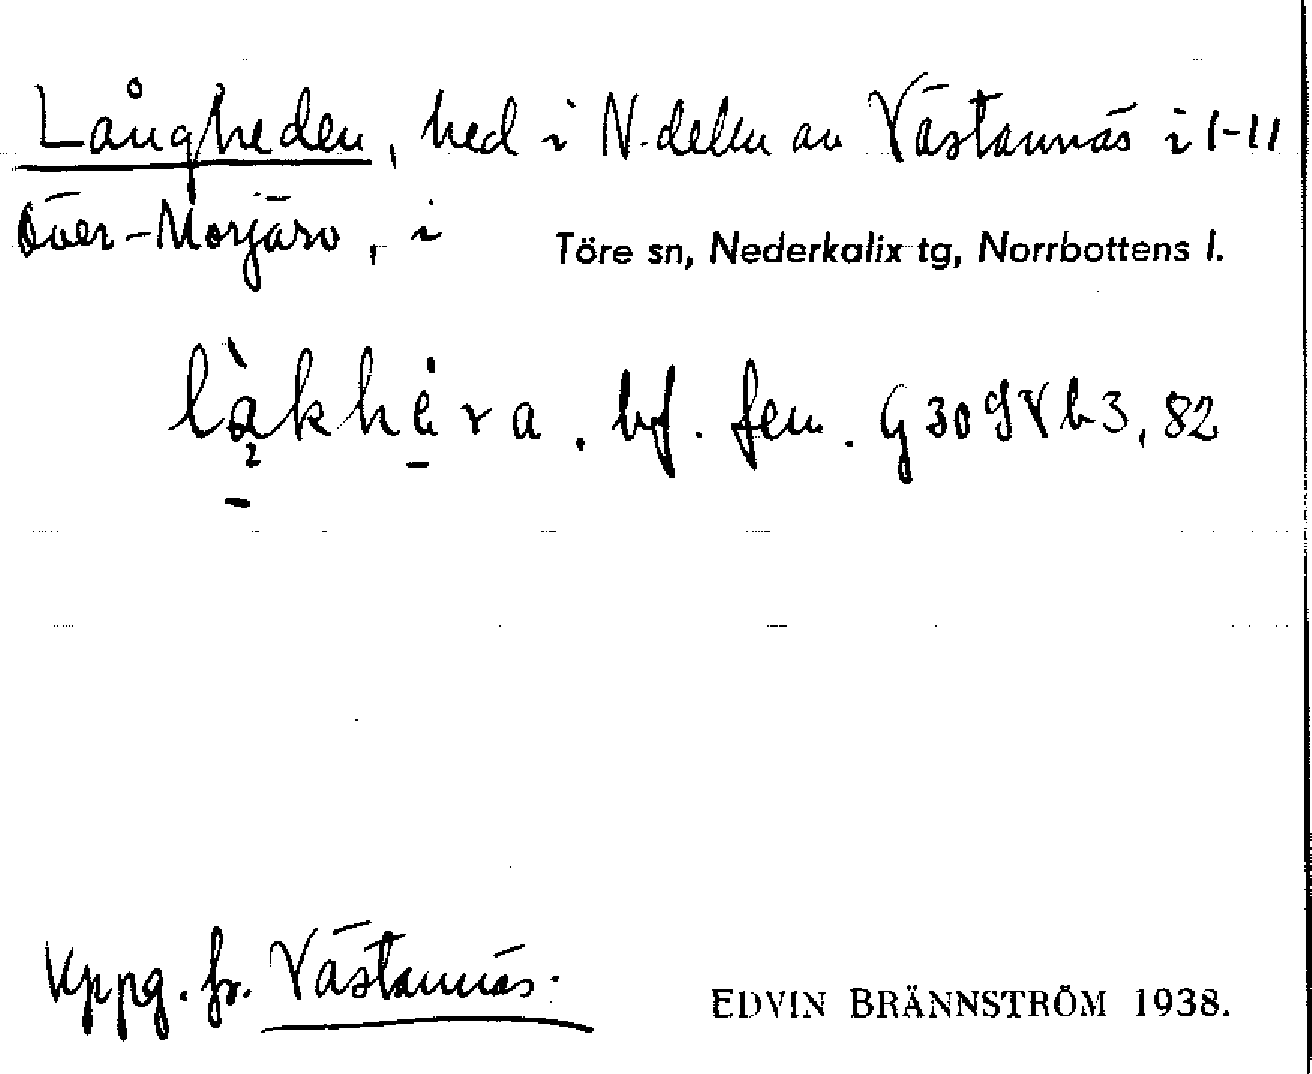 Långheden, hed i N. delen av Västannäs i 1-11
Över-Morjärv, i Töre sn, Nederkalix tg, Norrbottens l.
bf. fem. G 30 9 V b 3, 82
Uppg. fr. Västannäs.
EDVIN BRÄNNSTRÖM 1938.